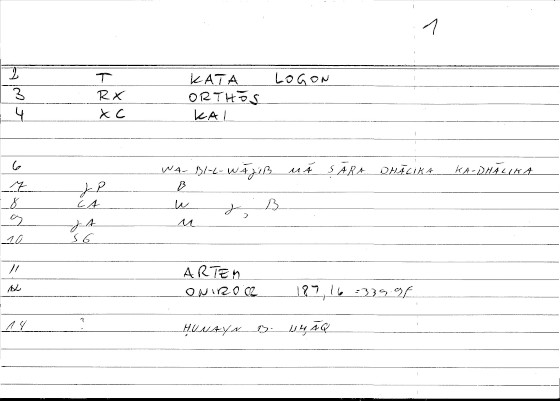 1
2 T KATA LOGON
3 RX ORTHŌS
4 XC KAI
6 WA-BI-L-WĀǦIB MĀ ṢĀRA DHĀLIKA KA-DHĀLIKA
7 B
8 CA W B
9 M
10 SG
11 ARTEM
12 ONIROCR 187,16 =339
14 ? ḤUNAYN B.